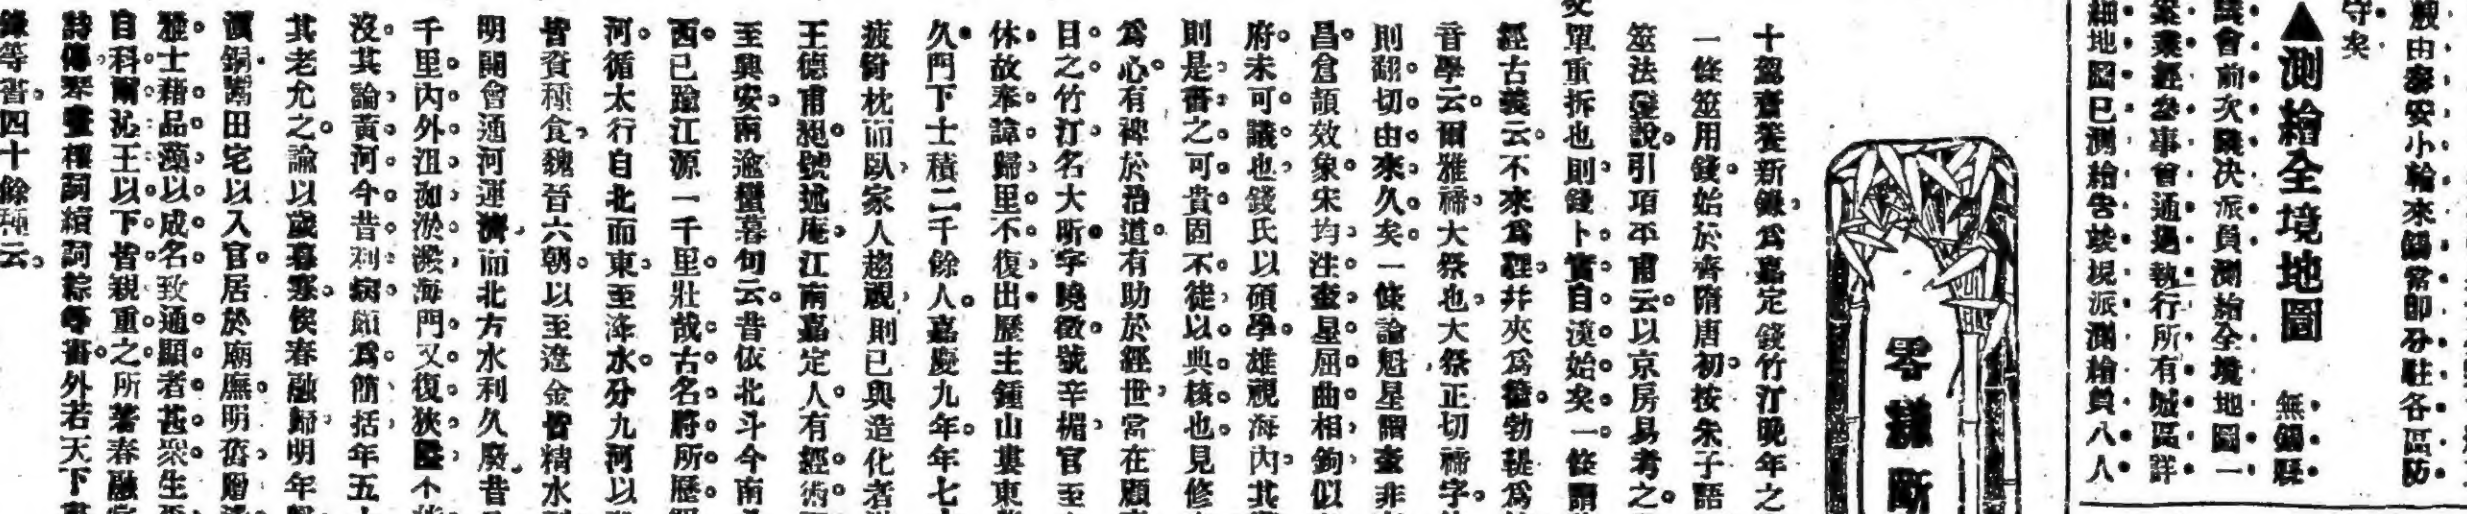 艘由泰安小輪來錫常卽分駐各區防
守矣
▲測繪全境地圖　無錫縣
議會前次議決派員測繪全境地圖一
案業經參事會通過執行所有城區詳
細地圖已測繪告竣現派測繪員八人
零縑斷
十駕齋養新錄。爲嘉定錢竹汀晚年之
一條筮用錢。始於齊隋唐初。按朱子語
筮法發說。引項平甫云。以京房易考之。
交單重拆也。則錢卜實自漢始矣。一條謂
經古義云。不來爲貍。幷夾爲籥。勃鞮爲
音學云。爾雅禘。大祭也。大祭正切禘字。
則翻切由來久矣。一條論魁星謂奎非
昌倉頡效象。宋均注。奎星屈曲相鉤。似
府。未可議也。錢氏以碩學雄視海內。其
則是書之可貴。固不徒以典核也。見修
爲心。有裨於治道。有助於經世。常在顧
目之。竹汀名大昕。字曉徵。號辛楣。官至
休。故奉諱歸里。不復出。歷主鍾山婁東
久。門下士積二千餘人。嘉慶九年。年七
疲。倚枕而臥。家人趨視。則已與造化者
王德甫昶。號述庵。江南嘉定人。有經術。
至興安。南逾欃暮句云。昔依北斗今南
西。已踰江源一千里。壯哉古名將。所歷
河。循太行自北而東。至洚水。分九河以
皆資種食。魏晉六朝。以至遼金。皆精水
明開會通河運濟。而北方水利久廢。昔
千里。內外沮洳淤澱。海門又復狹隘。不
沒。其論黃河今昔利病。頗爲簡括。年五
其老允之。論以歲暮寒。俟春融歸。明年
價銅鬻田宅以入官。居於廟廡。明舊贈
雅士藉品藻以成名。致通顯者甚衆。生
自科爾沁王以下。皆親重之。所著春融
詩傳。琴畫樓詞續詞綜等書。外若天下
錄等書。四十餘種云。